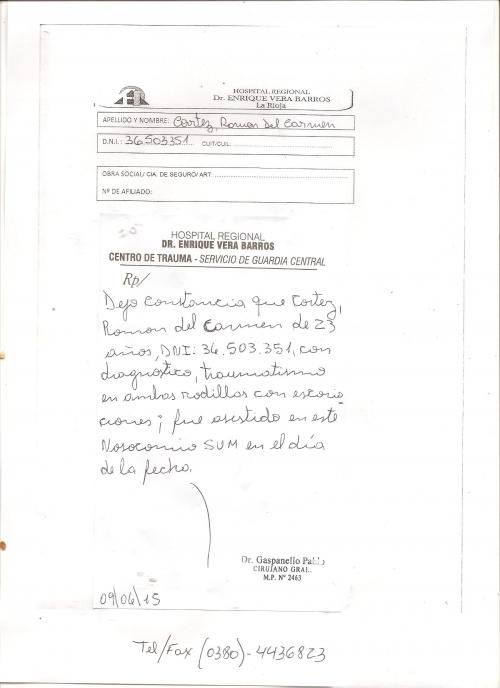 HOSPITAL REGIONAL
Dr. ENRIQUE VERA BARROS
La Rioja
APELLIDO Y NOMBRE: Cortez, Roman Del Carmen
D.N.I.: 36.503351 CUIT/CUIL:
OBRA SOCIAL/ CIA. DE SEGURO/ ART:
Nº DE AFILIADO:
HOSPITAL REGIONAL
DR. ENRIQUE VERA BARROS
CENTRO DE TRAUMA - SERVICIO DE GUARDIA CENTRAL
Rp/
Dejo constancia que Cortez,
Roman del Carmen de 23
años, DNI: 36.503.351, con
diagnostico, traumatismo
en ambas rodillas con escoria
ciones; fue asistido en este
Nosocomio SUM en el día
de la fecha.
Dr. Gaspanello Pablo
CIRUJANO GRAL.
M.P. Nº 2463
09/06/15
Tel/Fax (0380)-4436823